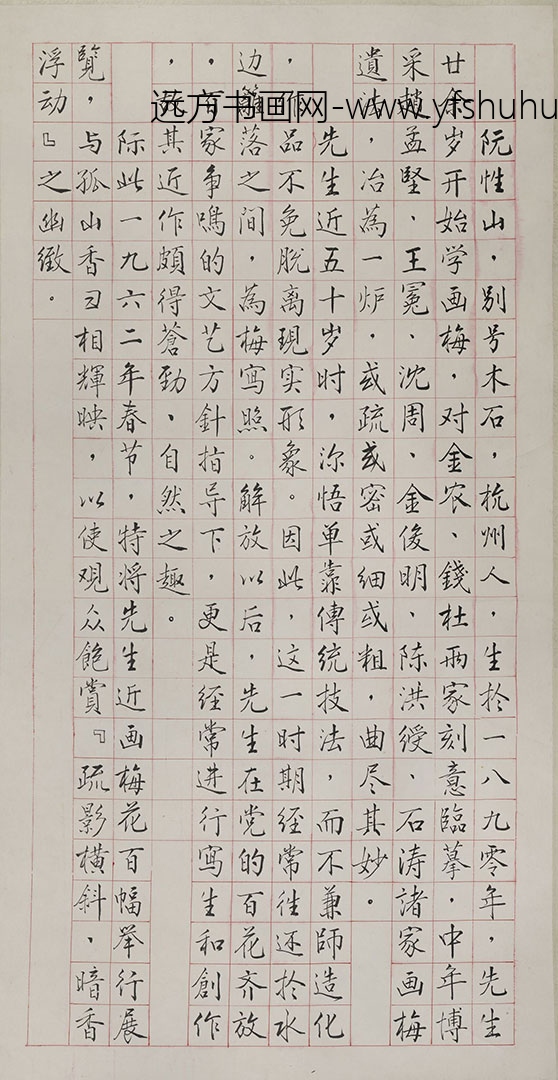 阮性山，别号木石，杭州人，生於一八九零年，先生
廿余岁开始学画梅，对金农、錢杜两家刻意臨摹，中年博
采趙孟堅、王冕、沈周、金俊明、陈洪綬、石涛諸家画梅
遺法，冶為一炉，或疏或密或细或粗，曲尽其妙。
先生近五十岁时，深悟单靠傳统技法，而不兼師造化
，作品不免脱离現实形象。因此，這一时期经常往还於水
边籬落之间，為梅寫照。解放以后，先生在党的百花齐放
，百家争鳴的文艺方針指导下，更是经常进行寫生和創作
，故其近作頗得蒼勁、自然之趣。
际此一九六二年春节，特将先生近画梅花百幅举行展
覽，与孤山香彐相輝映，以使观众飽賞『疏影横斜、暗香
浮动』之幽緻。
远方书画网-www.yfshuhu